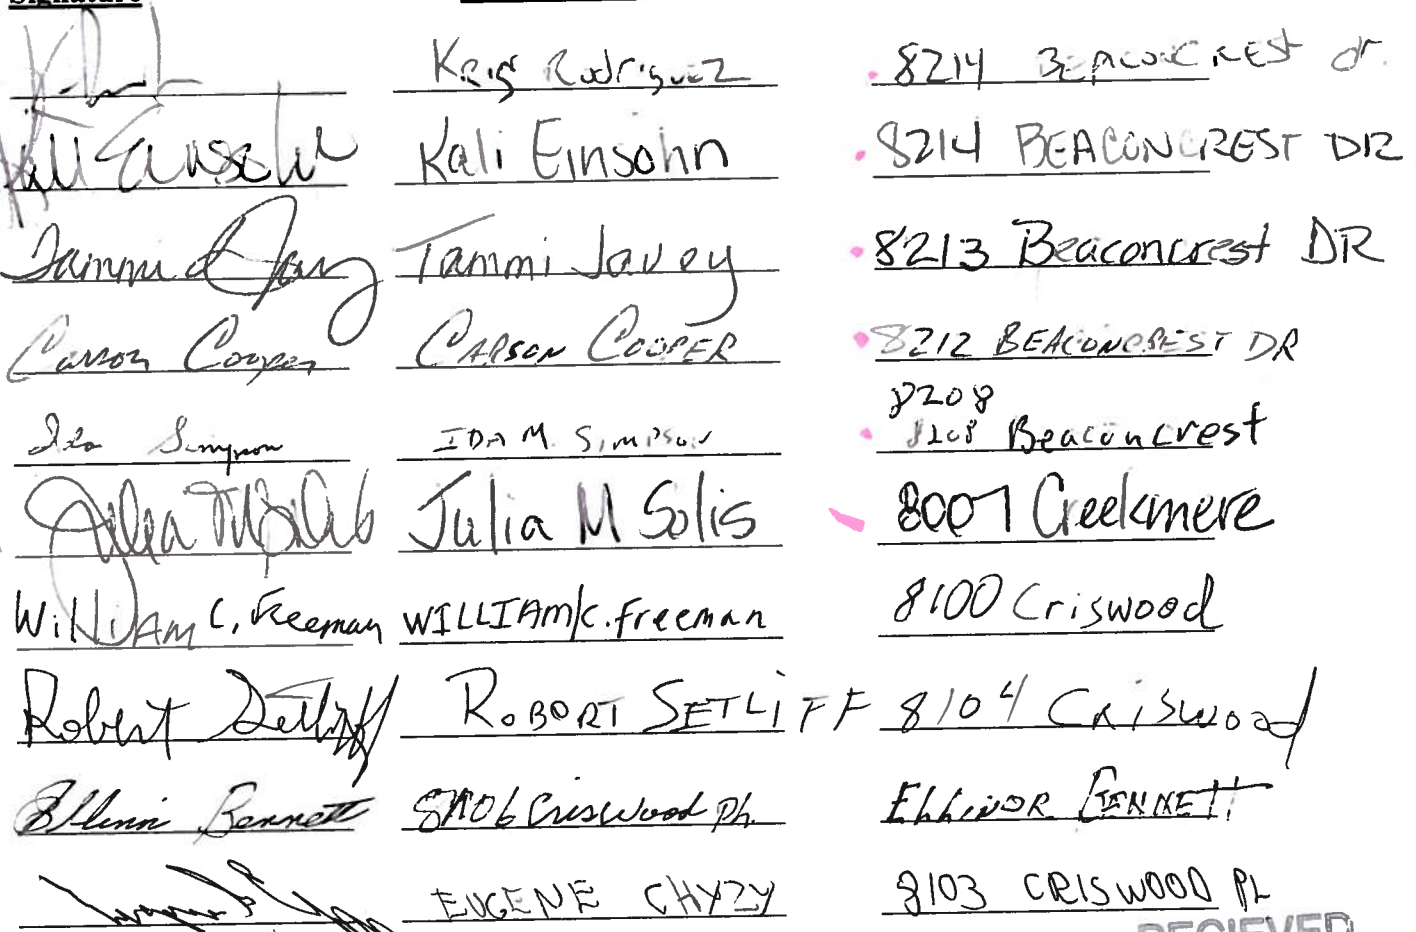 Signature
Kris Rodriguez 8214 Beaconcrest dr.
Kali Einsohn Kali Einsohn 8214 BEACONCREST DR
Tammi Javey Tammi Javey 8213 Beaconcrest DR
Carson Cooper CARSON COOPER 8212 BEACONCREST DR
8208
Ida Simpson IDA M. SIMPSON 8208 Beaconcrest
Julia M Solis Julia M Solis 8007 Creekmere
WilliAM C. Freeman WILLIAM C. Freeman 8100 Criswood
Robert Setliff ROBORT SETLIFF 8104 Criswood
Ellinor Bennett 8106 Criswood Pl. ELLINOR BENNETT
EUGENE CHYZY 8103 CRISWOOD PL
RECIEVED